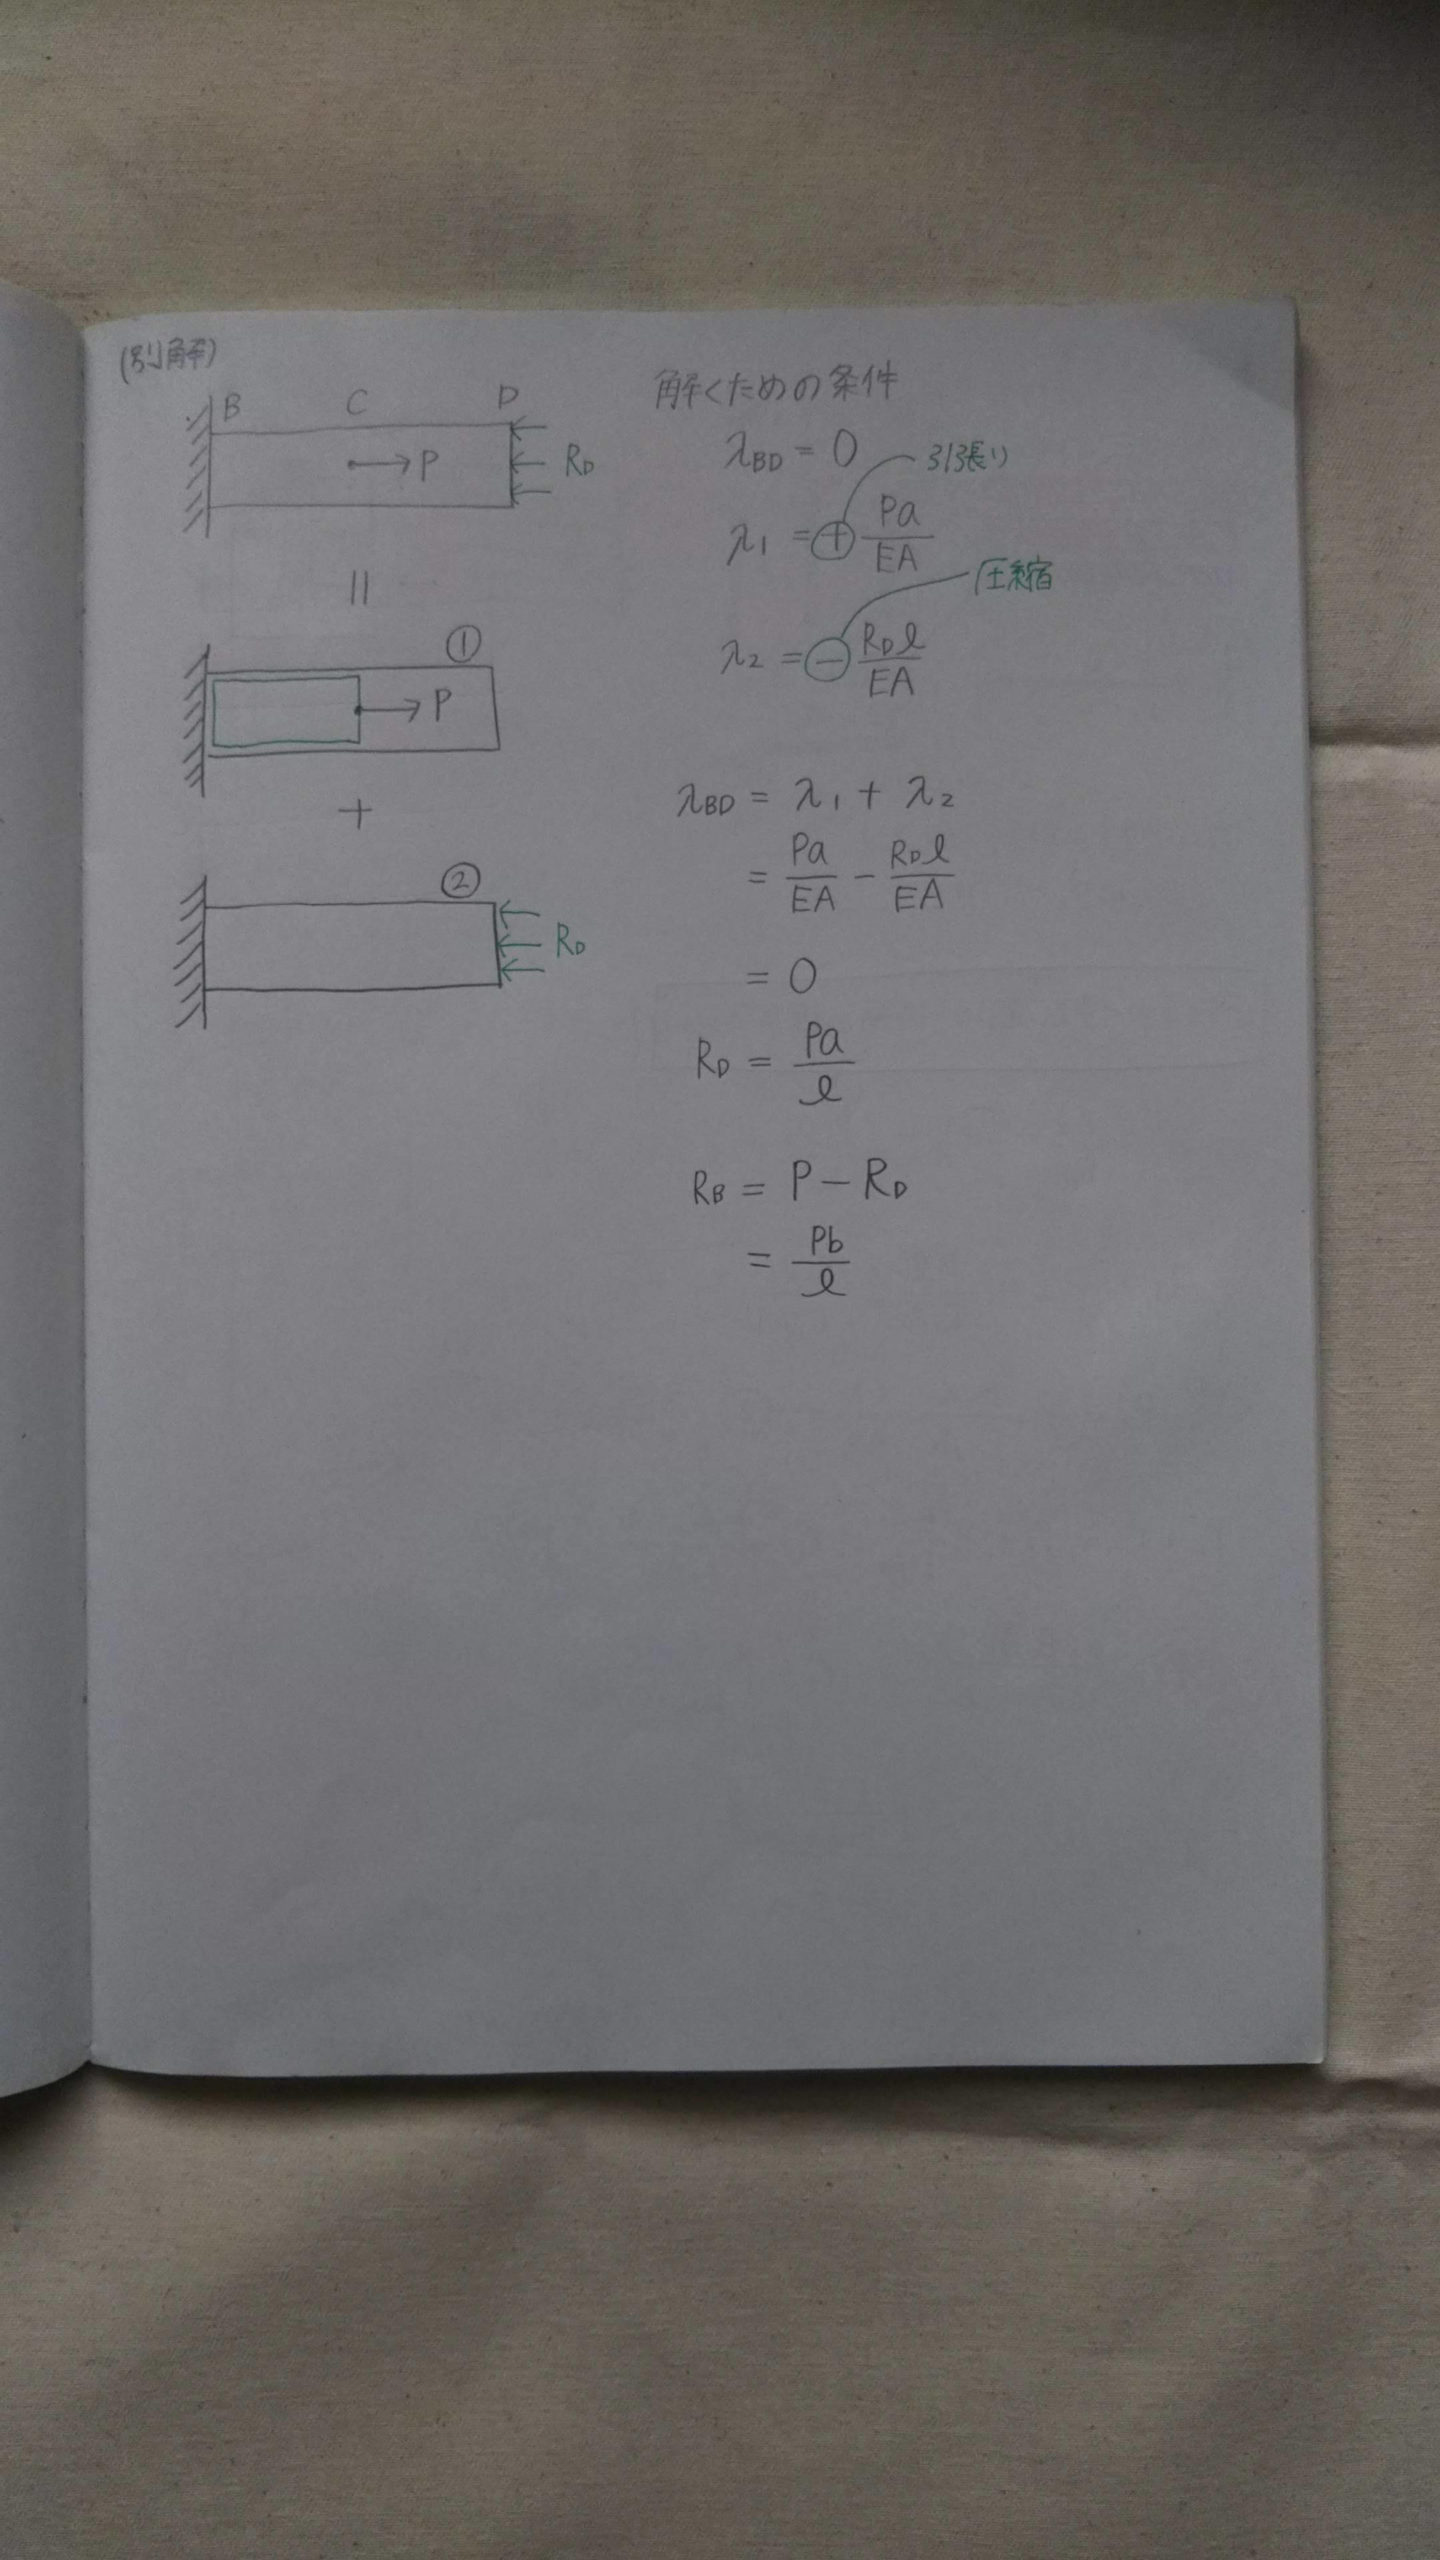 (別解)
B C D
P
R_D
||
①
P
+
②
R_D
解くための条件
λ_BD = 0
引張り
λ_1 = ⊕ Pa/EA
圧縮
λ_2 = ⊖ R_D ℓ/EA
λ_BD = λ_1 + λ_2
= Pa/EA − R_D ℓ/EA
= 0
R_D = Pa/ℓ
R_B = P − R_D
= Pb/ℓ